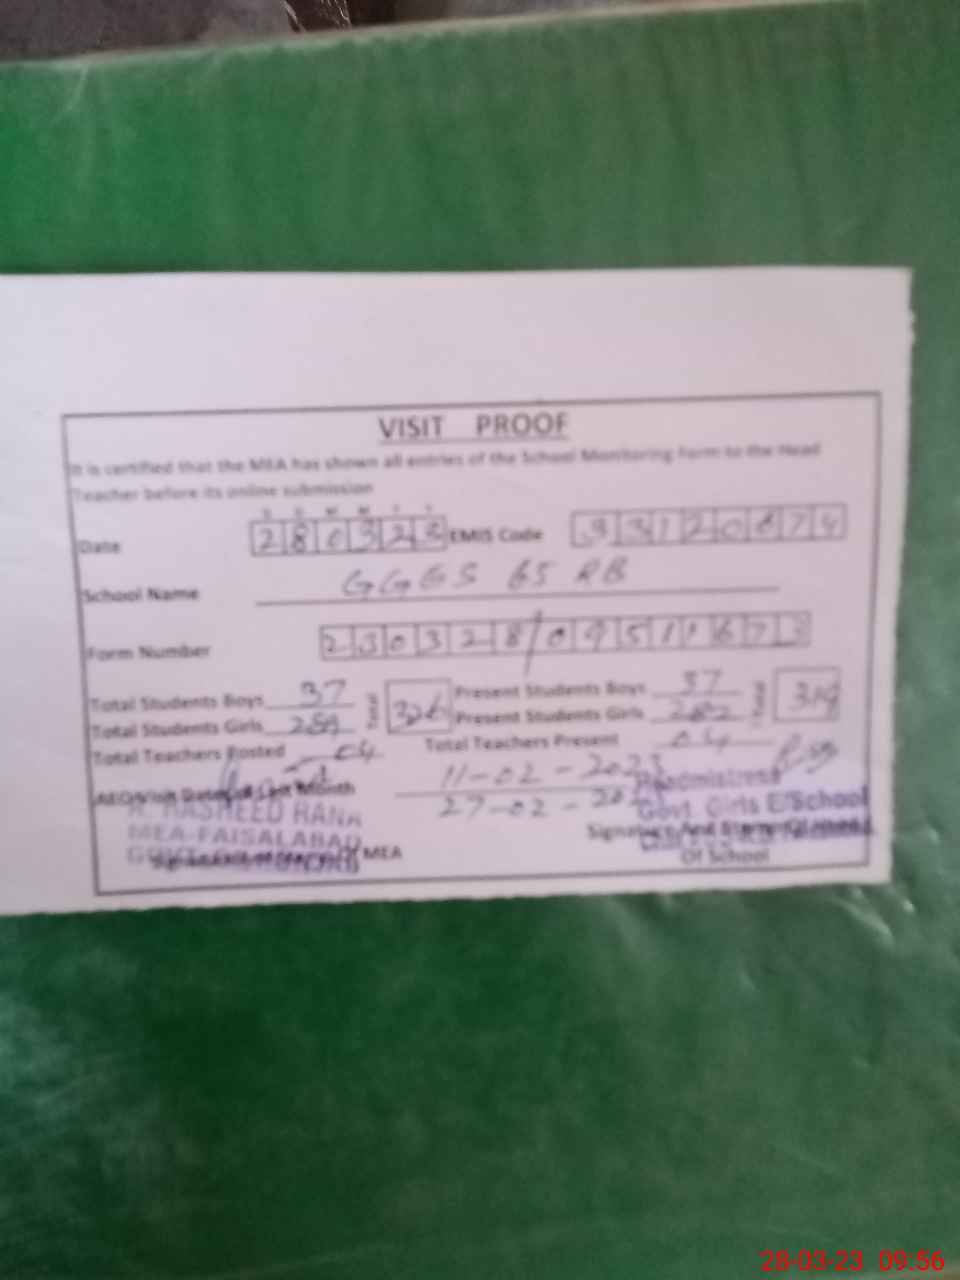 VISIT PROOF
It is certified that the MEA has shown all entries of the School Monitoring Form to the Head
Teacher before its online submission
D D M M Y Y
Date 280323 EMIS Code 33120874
School Name GGES 65 RB
Form Number 230328/09511673
Total Students Boys 37 Total 326 Present Students Boys 37 Total 319
Total Students Girls 289 Present Students Girls 282
Total Teachers Posted 04 Total Teachers Present 04
Last Month 11-02-2023
27-02-
RASHEED RANA
MEA-FAISALABAD
MEA
Headmistress
Govt. Girls E/School
Signature And Stamp Of Head
Of School
28-03-23 09:56